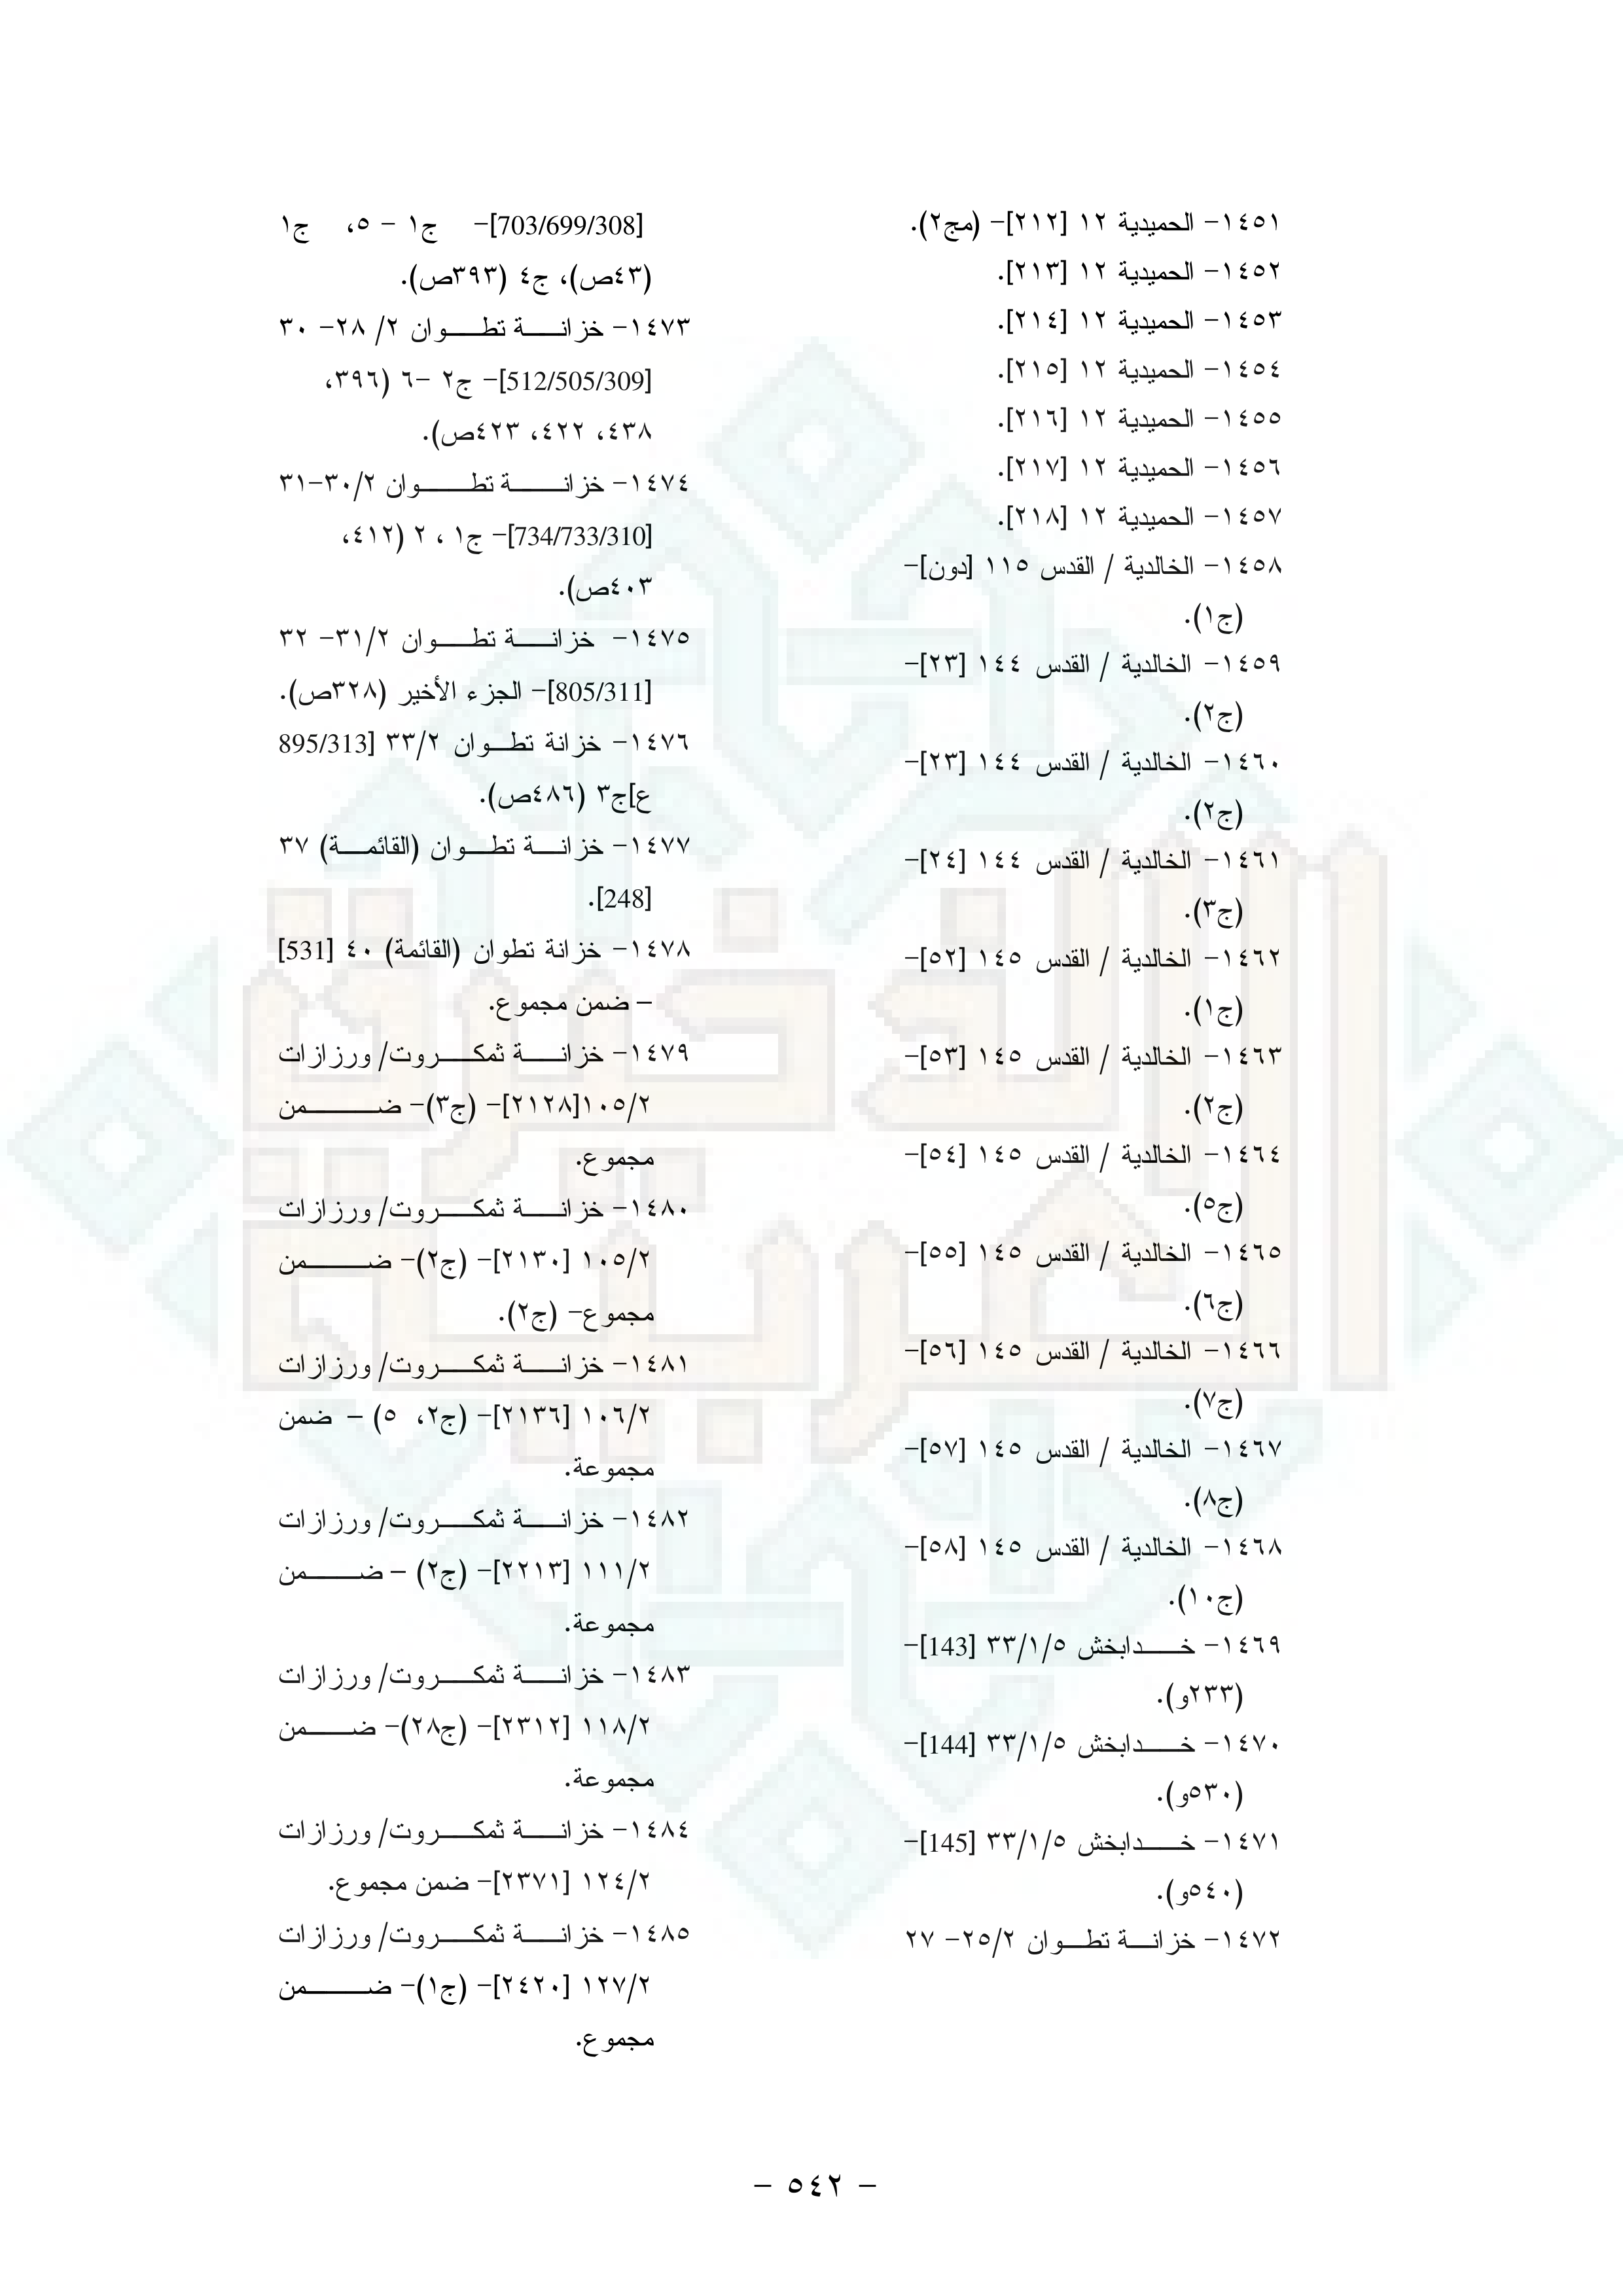 ١٤٥١- الحميدية ١٢ [٢١٢]- (مج٢).
١٤٥٢- الحميدية ١٢ [٢١٣].
١٤٥٣- الحميدية ١٢ [٢١٤].
١٤٥٤- الحميدية ١٢ [٢١٥].
١٤٥٥- الحميدية ١٢ [٢١٦].
١٤٥٦- الحميدية ١٢ [٢١٧].
١٤٥٧- الحميدية ١٢ [٢١٨].
١٤٥٨- الخالدية / القدس ١١٥ [دون]-
(ج١).
١٤٥٩- الخالدية / القدس ١٤٤ [٢٣]-
(ج٢).
١٤٦٠- الخالدية / القدس ١٤٤ [٢٣]-
(ج٢).
١٤٦١- الخالدية / القدس ١٤٤ [٢٤]-
(ج٣).
١٤٦٢- الخالدية / القدس ١٤٥ [٥٢]-
(ج١).
١٤٦٣- الخالدية / القدس ١٤٥ [٥٣]-
(ج٢).
١٤٦٤- الخالدية / القدس ١٤٥ [٥٤]-
(ج٥).
١٤٦٥- الخالدية / القدس ١٤٥ [٥٥]-
(ج٦).
١٤٦٦- الخالدية / القدس ١٤٥ [٥٦]-
(ج٧).
١٤٦٧- الخالدية / القدس ١٤٥ [٥٧]-
(ج٨).
١٤٦٨- الخالدية / القدس ١٤٥ [٥٨]-
(ج١٠).
١٤٦٩- خدابخش ٣٣/١/٥ [143]-
(٢٣٣و).
١٤٧٠- خدابخش ٣٣/١/٥ [144]-
(٥٣٠و).
١٤٧١- خدابخش ٣٣/١/٥ [145]-
(٥٤٠و).
١٤٧٢- خزانة تطوان ٢٥/٢- ٢٧
[703/699/308]- ج١ - ٥، ج١
(٤٣ص)، ج٤ (٣٩٣ص).
١٤٧٣- خزانة تطوان ٢/ ٢٨- ٣٠
[512/505/309]- ج٢ -٦ (٣٩٦،
٤٣٨، ٤٢٢، ٤٢٣ص).
١٤٧٤- خزانة تطوان ٣٠/٢-٣١
[734/733/310]- ج١ ، ٢ (٤١٢،
٤٠٣ص).
١٤٧٥- خزانة تطوان ٣١/٢- ٣٢
[805/311]- الجزء الأخير (٣٢٨ص).
١٤٧٦- خزانة تطوان ٣٣/٢ [895/313
ع]ج٣ (٤٨٦ص).
١٤٧٧- خزانة تطوان (القائمة) ٣٧
[248].
١٤٧٨- خزانة تطوان (القائمة) ٤٠ [531]
– ضمن مجموع.
١٤٧٩- خزانة ثمكروت/ ورزازات
١٠٥/٢[٢١٢٨]- (ج٣)- ضمن
مجموع.
١٤٨٠- خزانة ثمكروت/ ورزازات
١٠٥/٢ [٢١٣٠]- (ج٢)- ضمن
مجموع- (ج٢).
١٤٨١- خزانة ثمكروت/ ورزازات
١٠٦/٢ [٢١٣٦]- (ج٢، ٥) – ضمن
مجموعة.
١٤٨٢- خزانة ثمكروت/ ورزازات
١١١/٢ [٢٢١٣]- (ج٢) – ضمن
مجموعة.
١٤٨٣- خزانة ثمكروت/ ورزازات
١١٨/٢ [٢٣١٢]- (ج٢٨)- ضمن
مجموعة.
١٤٨٤- خزانة ثمكروت/ ورزازات
١٢٤/٢ [٢٣٧١]- ضمن مجموع.
١٤٨٥- خزانة ثمكروت/ ورزازات
١٢٧/٢ [٢٤٢٠]- (ج١)- ضمن
مجموع.
الذخيرة
العربية
- ٥٤٢ -